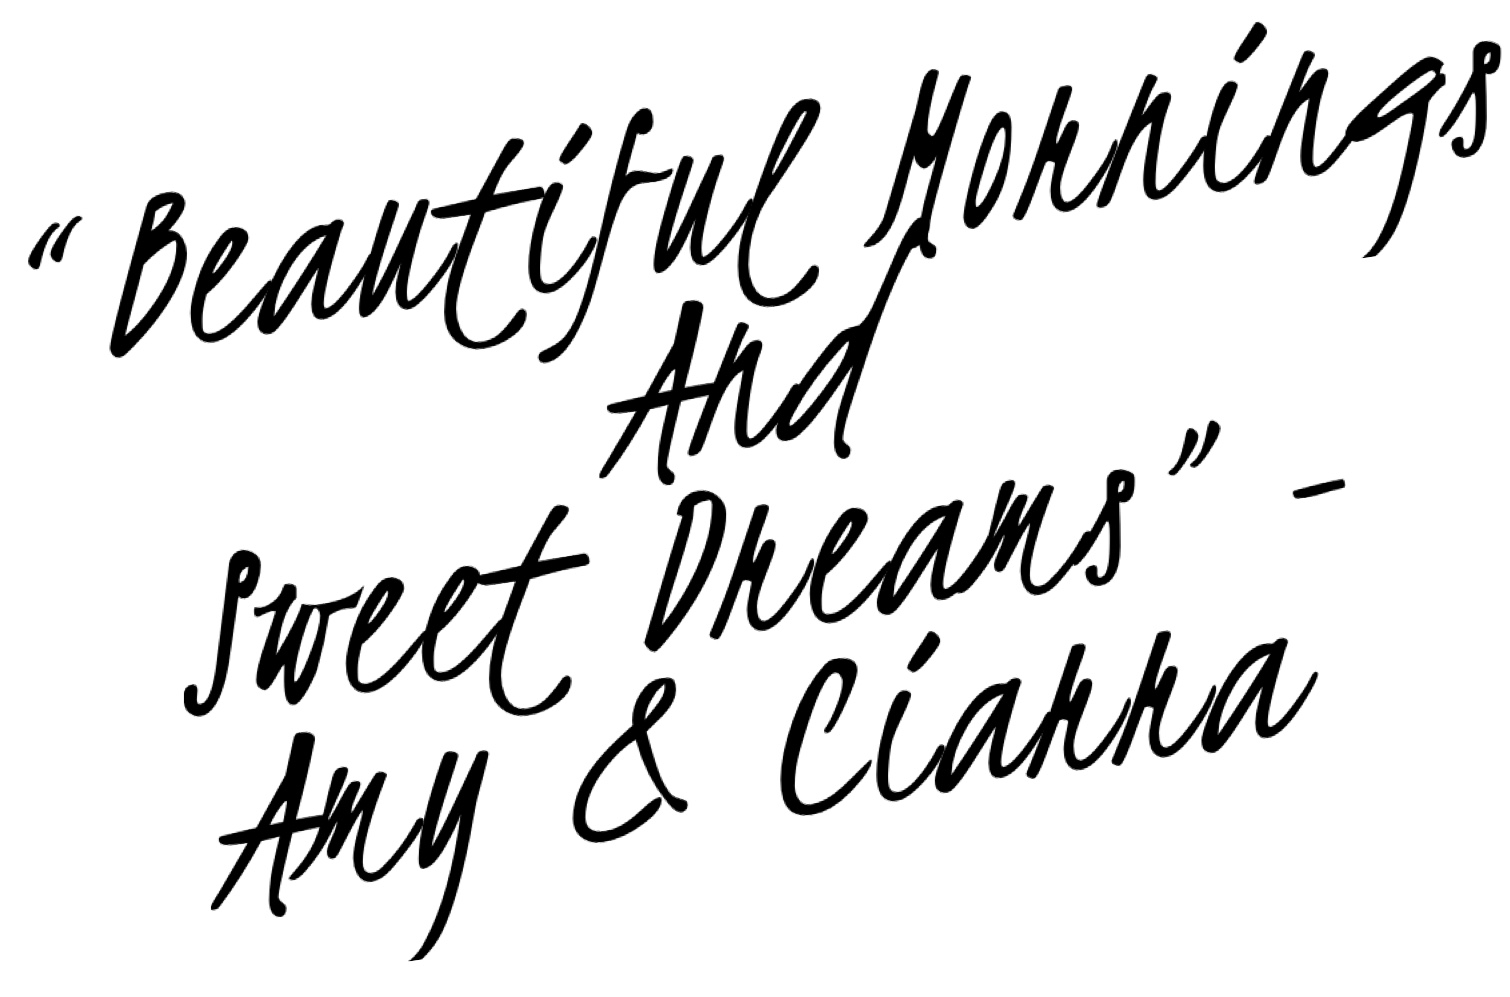 “Beautiful Mornings
And
Sweet Dreams” -
Amy & Ciarra